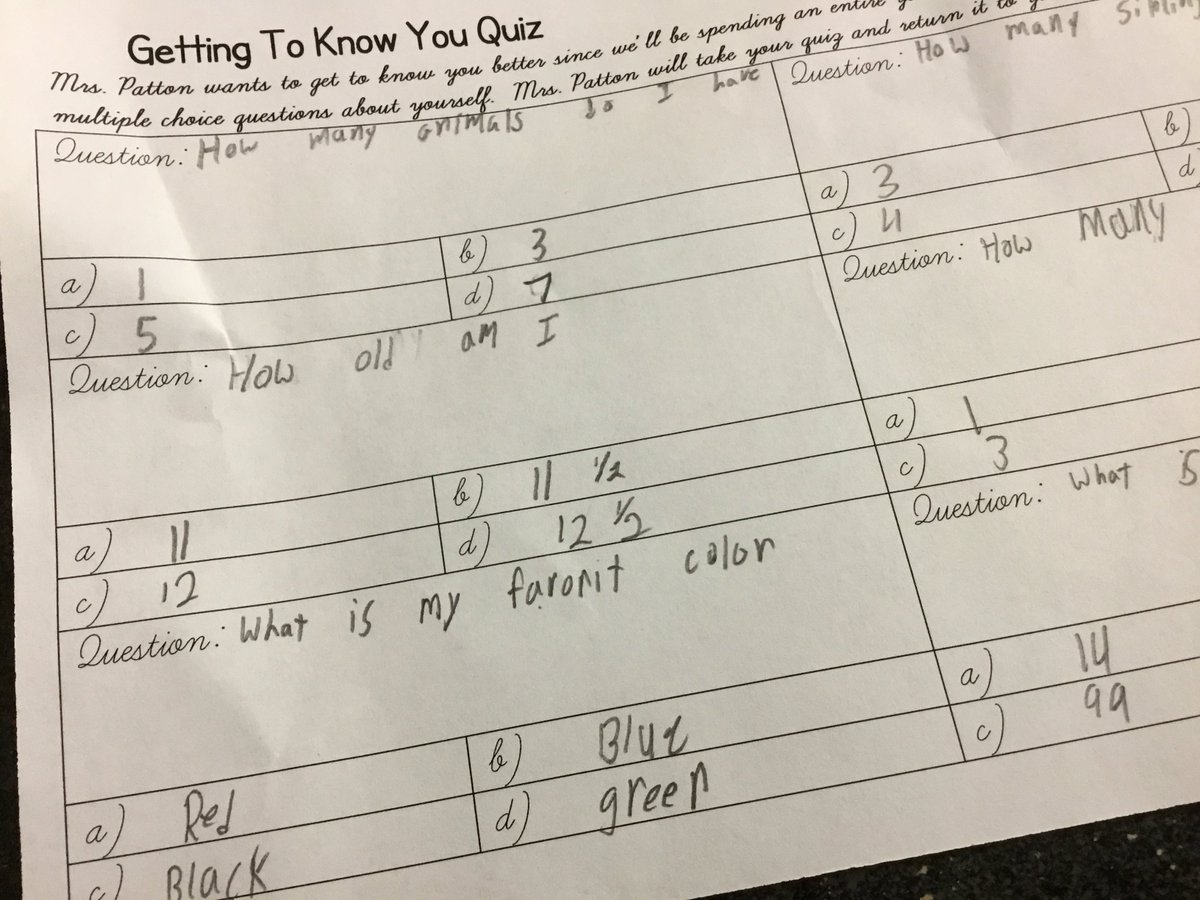 Getting To Know You Quiz
Mrs. Patton wants to get to know you better since we'll be spending an entire
multiple choice questions about yourself. Mrs. Patton will take your quiz and return it to
Question: How many animals do I have
a) 1
b) 3
c) 5
d) 7
Question: How many
a) 3
b)
c) 4
d)
Question: How old am I
a) 11
b) 11 1/2
c) 12
d) 12 1/2
Question: How Many
a) 1
c) 3
Question: What is my faronit color
a) Red
b) Blue
c) Black
d) green
Question: What is
a) 14
c) 99